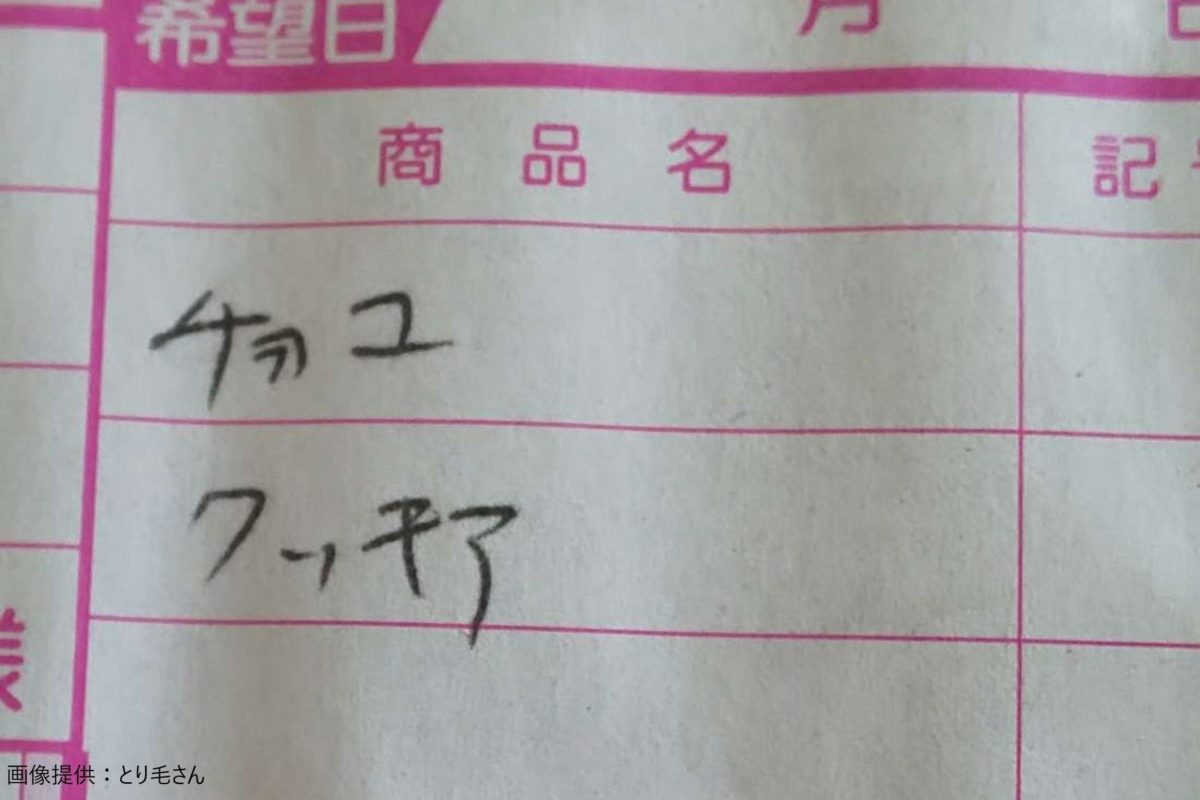 希望日 月 日
商品名 記号
チョコ
クッキア
様
画像提供：とり毛さん